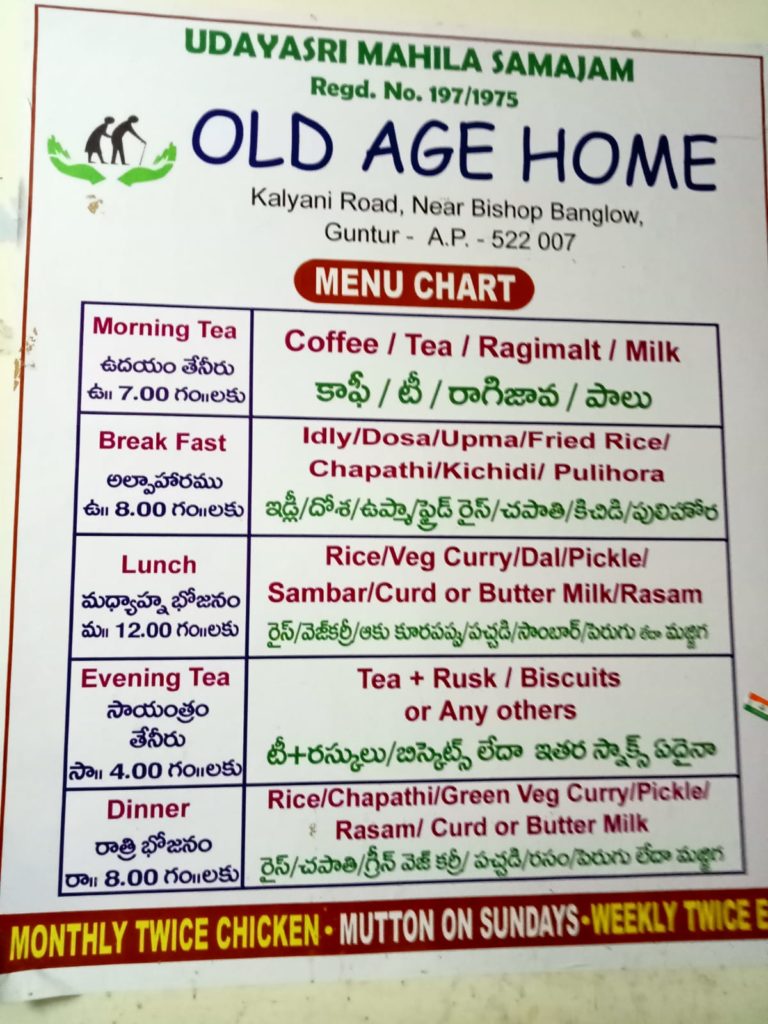 UDAYASRI MAHILA SAMAJAM
Regd. No. 197/1975
OLD AGE HOME
Kalyani Road, Near Bishop Banglow,
Guntur - A.P. - 522 007
MENU CHART
Morning Tea
ఉదయం తేనీరు
ఉ॥ 7.00 గం॥లకు
Coffee / Tea / Ragimalt / Milk
కాఫీ / టీ / రాగిజావ / పాలు
Break Fast
అల్పాహారము
ఉ॥ 8.00 గం॥లకు
Idly/Dosa/Upma/Fried Rice/
Chapathi/Kichidi/ Pulihora
ఇడ్లీ/దోశ/ఉప్మా/ఫ్రైడ్ రైస్/చపాతి/కిచిడి/పులిహోర
Lunch
మధ్యాహ్న భోజనం
మ॥ 12.00 గం॥లకు
Rice/Veg Curry/Dal/Pickle/
Sambar/Curd or Butter Milk/Rasam
రైస్/వెజ్‌కర్రీ/ఆకు కూరపప్పు/పచ్చడి/సాంబార్/పెరుగు లేదా మజ్జిగ
Evening Tea
సాయంత్రం
తేనీరు
సా॥ 4.00 గం॥లకు
Tea + Rusk / Biscuits
or Any others
టీ+రస్కులు/బిస్కెట్స్ లేదా ఇతర స్నాక్స్ ఏదైనా
Dinner
రాత్రి భోజనం
రా॥ 8.00 గం॥లకు
Rice/Chapathi/Green Veg Curry/Pickle/
Rasam/ Curd or Butter Milk
రైస్/చపాతి/గ్రీన్ వెజ్ కర్రీ/ పచ్చడి/రసం/పెరుగు లేదా మజ్జిగ
MONTHLY TWICE CHICKEN • MUTTON ON SUNDAYS • WEEKLY TWICE E